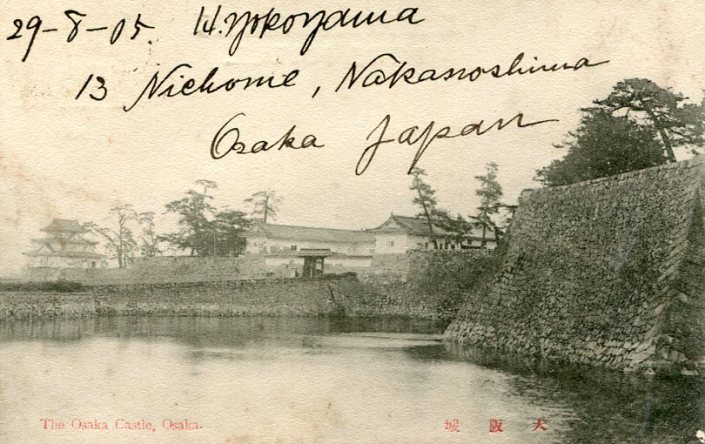 29-8-05. H. Yokoyama
13 Nichome, Nakanoshima
Osaka Japan
The Osaka Castle, Osaka.
城 阪 大